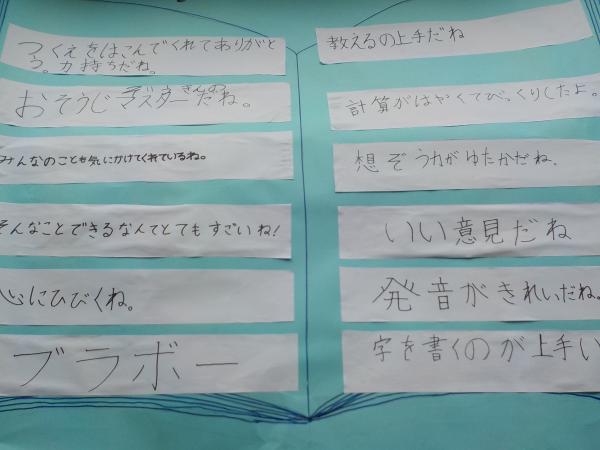 つくえをはこんでくれてありがと
う。力持ちだね。
おそうじマスターだね。
みんなのことも気にかけてくれているね。
そんなことできるなんてとてもすごいね!
心にひびくね。
ブラボー
教えるの上手だね
計算がはやくてびっくりしたよ。
想ぞうカがゆたかだね。
いい意見だね
発音がきれいだね。
字を書くのが上手い